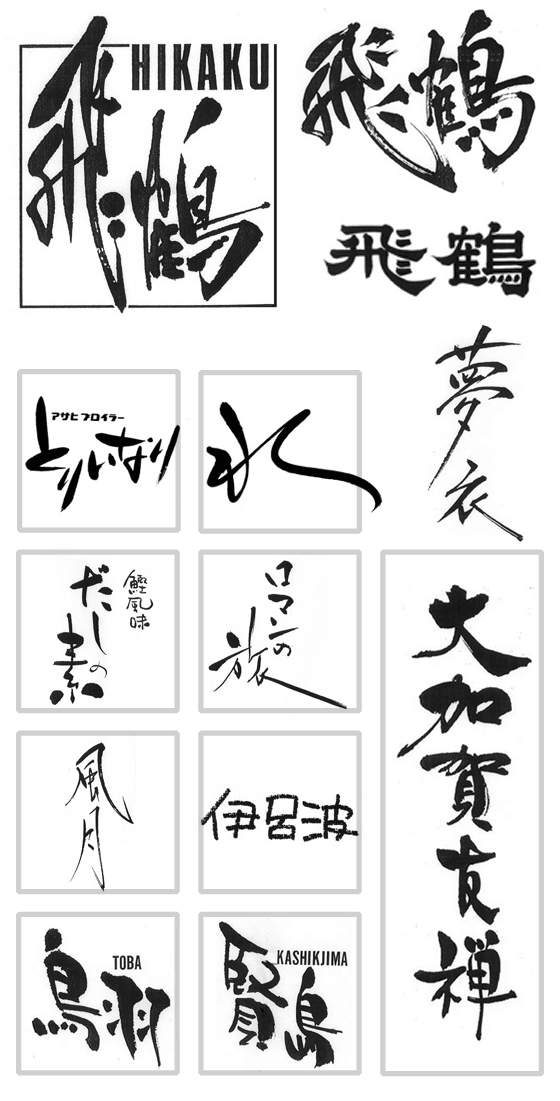 HIKAKU
飛鶴
飛鶴
飛鶴
夢衣
アサヒブロイラー
とりいなり
水
鰹風味
だしの素
ロマンの旅
大加賀友禅
風月
伊呂波
TOBA
鳥羽
KASHIKJIMA
賢島